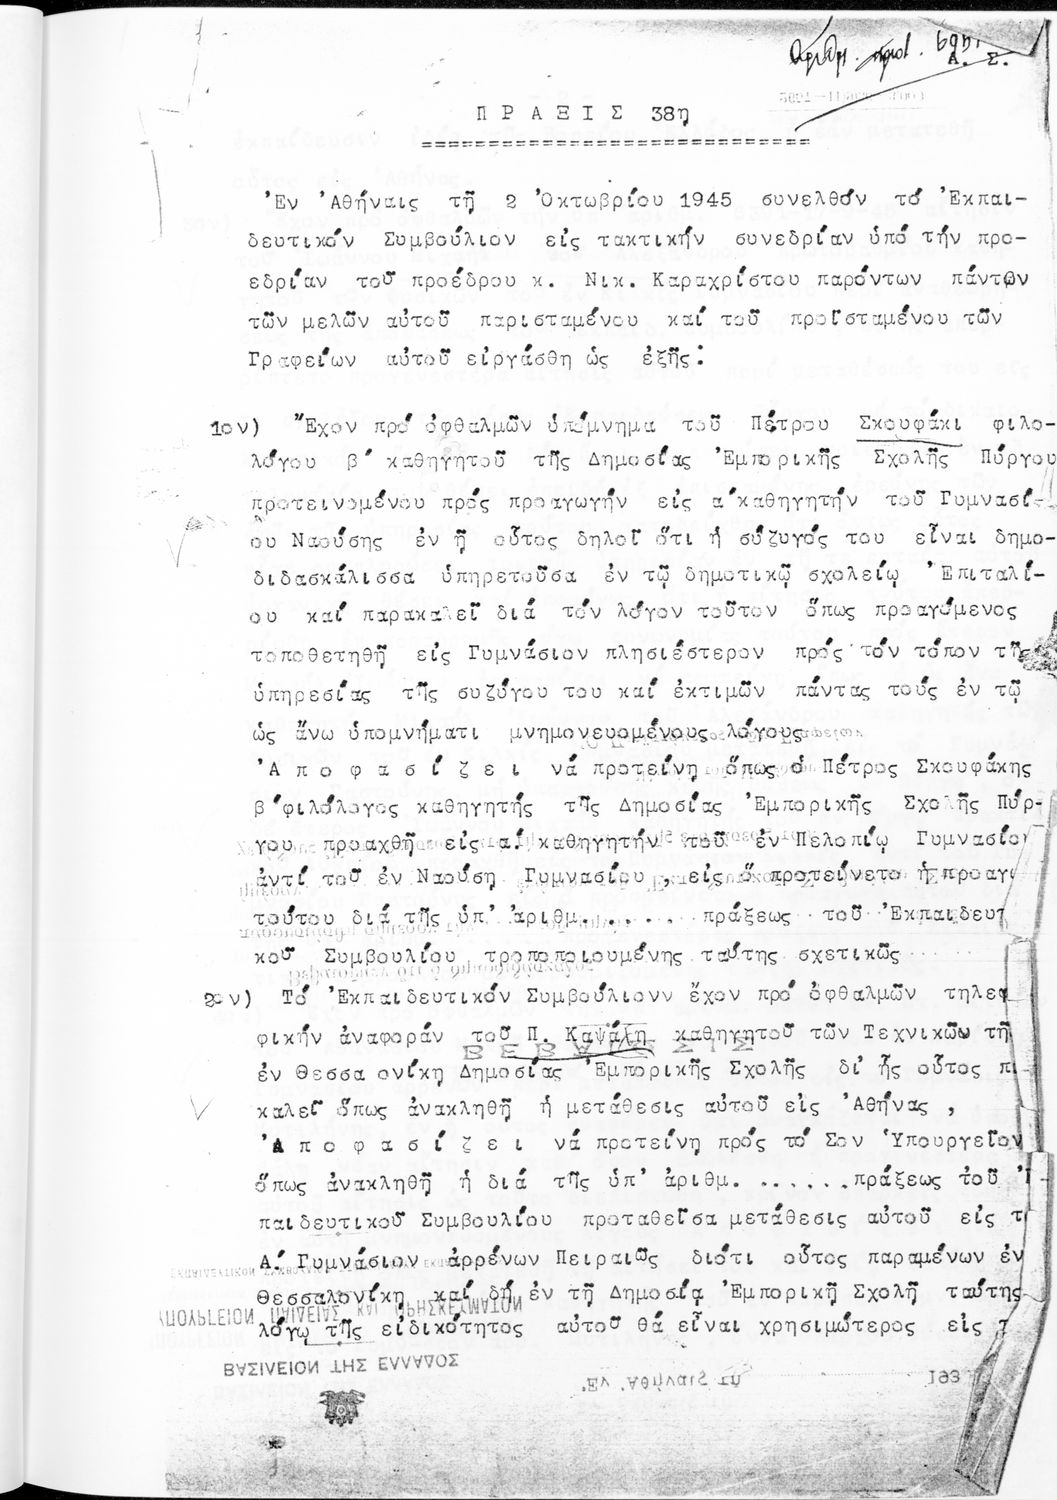 Α. Σ.
ΠΡΑΞΙΣ 38η
Ἐν Ἀθήναις τῇ 2 Ὀκτωβρίου 1945 συνελθόν τό Ἐκπαι-
δευτικόν Συμβούλιον εἰς τακτικήν συνεδρίαν ὑπό τήν προ-
εδρίαν τοῦ προέδρου κ. Νικ. Καραχρίστου παρόντων πάντων
τῶν μελῶν αὐτοῦ παρισταμένου καί τοῦ προϊσταμένου τῶν
Γραφείων αὐτοῦ εἰργάσθη ὡς ἑξῆς:
1ον) Ἔχον πρό ὀφθαλμῶν ὑπόμνημα τοῦ Πέτρου Σκουφάκι φιλο-
λόγου β΄ καθηγητοῦ τῆς Δημοσίας Ἐμπορικῆς Σχολῆς Πύργου
προτεινομένου πρός προαγωγήν εἰς α΄καθηγητήν τοῦ Γυμνασί-
ου Ναούσης ἐν ᾗ οὗτος δηλοῖ ὅτι ἡ σύζυγός του εἶναι δημο-
διδασκάλισσα ὑπηρετοῦσα ἐν τῷ δημοτικῷ σχολείῳ Ἐπιταλί-
ου καί παρακαλεῖ διά τόν λόγον τοῦτον ὅπως προαγόμενος
τοποθετηθῇ εἰς Γυμνάσιον πλησιέστερον πρός τόν τόπον τῆς
ὑπηρεσίας τῆς συζύγου του καί ἐκτιμῶν πάντας τούς ἐν τῷ
ὡς ἄνω ὑπομνήματι μνημονευομένους λόγους
Ἀποφασίζει νά προτείνῃ ὅπως ὁ Πέτρος Σκουφάκης
β΄φιλόλογος καθηγητής τῆς Δημοσίας Ἐμπορικῆς Σχολῆς Πύρ-
γου προαχθῇ εἰς α΄ καθηγητήν τοῦ ἐν Πελοπίῳ Γυμνασίο
ἀντί τοῦ ἐν Ναούσῃ Γυμνασίου, εἰς ὅ προτείνετο ἡ προαγ
τούτου διά τῆς ὑπ' ἀριθμ....... πράξεως τοῦ Ἐκπαιδευτ
κοῦ Συμβουλίου τροποποιουμένης ταύτης σχετικῶς
2ον) Τό Ἐκπαιδευτικόν Συμβούλιονν ἔχον πρό ὀφθαλμῶν τηλεφ
φικήν ἀναφοράν τοῦ Π. Καψάλη καθηγητοῦ τῶν Τεχνικῶν τῆ
ἐν Θεσσα ονίκῃ Δημοσίας Ἐμπορικῆς Σχολῆς δι' ἧς οὗτος π
καλεῖ ὅπως ἀνακληθῇ ἡ μετάθεσις αὐτοῦ εἰς Ἀθήνας ,
Ἀποφασίζει νά προτείνῃ πρός τό Σον Ὑπουργεῖον
ὅπως ἀνακληθῇ ἡ διά τῆς ὑπ' ἀριθμ. .......πράξεως τοῦ Ἐ
παιδευτικοῦ Συμβουλίου προταθεῖσα μετάθεσις αὐτοῦ εἰς τ
Α΄ Γυμνάσιον ἀρρένων Πειραιῶς διότι οὗτος παραμένων ἐν
Θεσσαλονίκῃ καί δή ἐν τῇ Δημοσίᾳ Ἐμπορικῇ Σχολῇ ταύτης
λόγῳ τῆς εἰδικότητος αὐτοῦ θά εἶναι χρησιμώτερος εἰς τ
ΥΠΟΥΡΓΕΙΟΝ ΠΑΙΔΕΙΑΣ ΚΑΙ ΘΡΗΣΚΕΥΜΑΤΩΝ
ΒΑΣΙΛΕΙΟΝ ΤΗΣ ΕΛΛΑΔΟΣ
Ἐν Ἀθήναις τῇ 193
ΒΕΒΑΙΩΣΙΣ